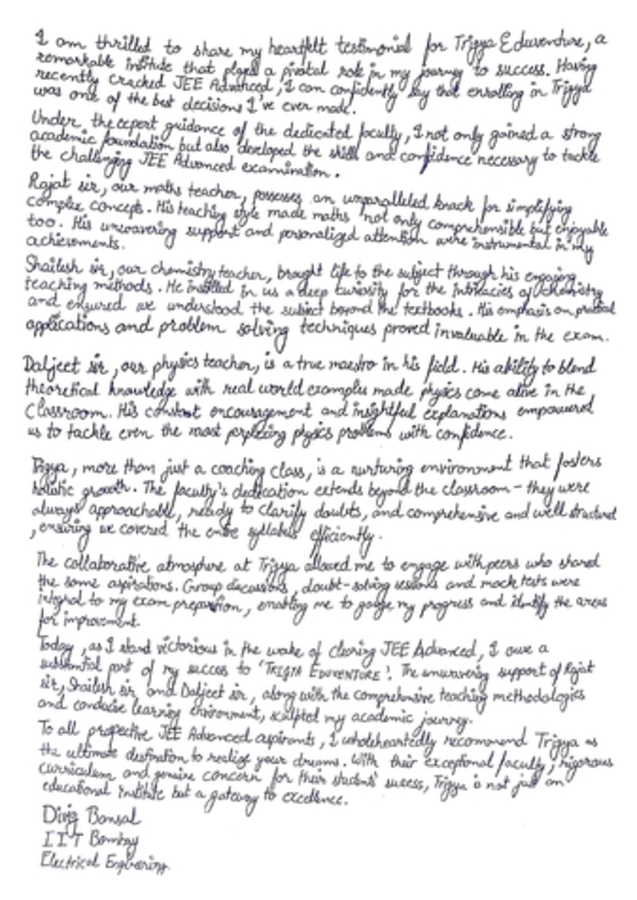 I am thrilled to share my heartfelt testimonial for Trigya Eduventure, a
remarkable institute that played a pivotal role in my journey to success. Having
recently cracked JEE Advanced, I can confidently say that enrolling in Trigya
was one of the best decisions I've ever made.
Under the expert guidance of the dedicated faculty, I not only gained a strong
academic foundation but also developed the skill and confidence necessary to tackle
the challenging JEE Advanced examination.
Rajat sir, our maths teacher, possesses an unparalleled knack for simplifying
complex concepts. His teaching style made maths not only comprehensible but enjoyable
too. His unwavering support and personalized attention were instrumental in my
achievements.
Shailesh sir, our chemistry teacher, brought life to the subject through his engaging
teaching methods. He instilled in us a deep curiosity for the intricacies of chemistry
and ensured we understood the subject beyond the textbooks. His emphasis on practical
applications and problem solving techniques proved invaluable in the exam.
Daljeet sir, our physics teacher, is a true maestro in his field. His ability to blend
theoretical knowledge with real world examples made physics come alive in the
classroom. His constant encouragement and insightful explanations empowered
us to tackle even the most perplexing physics problems with confidence.
Trigya, more than just a coaching class, is a nurturing environment that fosters
holistic growth. The faculty's dedication extends beyond the classroom - they were
always approachable, ready to clarify doubts, and comprehensive and well structured
, ensuring we covered the entire syllabus efficiently.
The collaborative atmosphere at Trigya allowed me to engage with peers who shared
the same aspirations. Group discussions, doubt-solving sessions and mock tests were
integral to my exam preparation, enabling me to gauge my progress and identify the areas
for improvement.
Today, as I stand victorious in the wake of clearing JEE Advanced, I owe a
substantial part of my success to 'TRIGYA EDUVENTURE'. The unwavering support of Rajat
sir, Shailesh sir and Daljeet sir, along with the comprehensive teaching methodologies
and conducive learning environment, sculpted my academic journey.
To all prospective JEE Advanced aspirants, I wholeheartedly recommend Trigya as
the ultimate destination to realize your dreams. With their exceptional faculty, rigorous
curriculum and genuine concern for their students' sucess, Trigya is not just an
educational institute but a gateway to excellence.
Bansal
IIT Bombay
Electrical Engineering